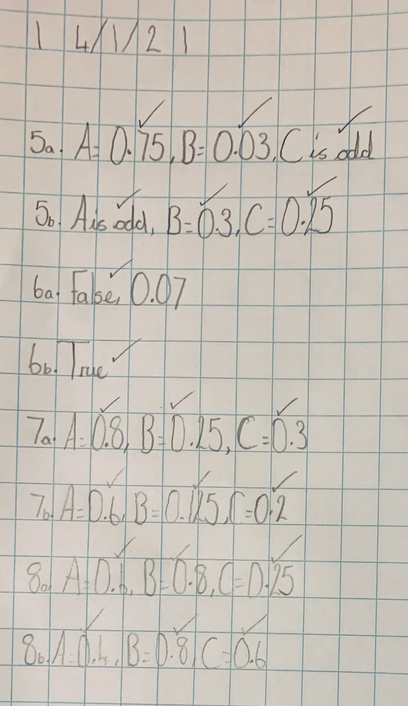 14/1/21
5a. A=0.75, B=0.03, C is odd
5b. A is odd, B=0.3, C=0.25
6a. False, 0.07
6b. True
7a. A=0.8, B=0.25, C=0.3
7b. A=0.6, B=0.125, C=0.2
8a. A=0.1, B=0.8, C=0.25
8b. A=0.4, B=0.8, C=0.6